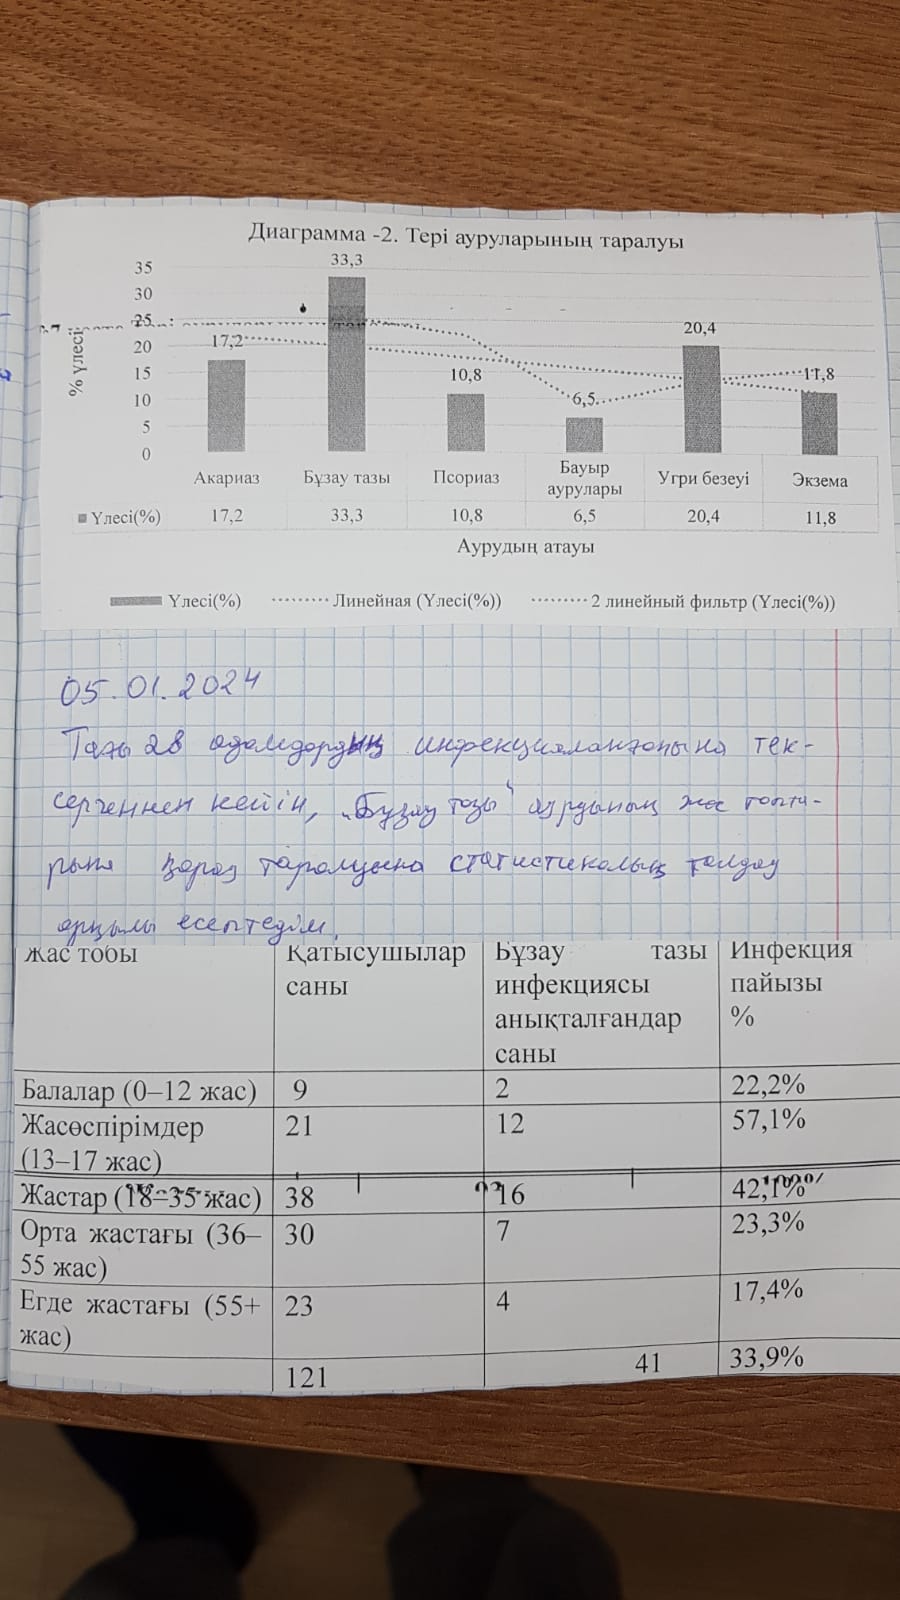 Диаграмма -2. Тері ауруларының таралуы
% үлесі
35
30
25
20
15
10
5
0
17,2
33,3
10,8
6,5
20,4
11,8
Акариаз Бұзау тазы Псориаз Бауыр аурулары Угри безеуі Экзема
Үлесі(%) 17,2 33,3 10,8 6,5 20,4 11,8
Аурудың атауы
Үлесі(%) Линейная (Үлесі(%)) 2 линейный фильтр (Үлесі(%))
05.01.2024
Тағы 28 адамдардың инфекцияланғанына тек-
сергеннен кейін, „Бұзау тазы" аурдының жас топта-
рына қарай таралуына статистикалық талдау
арқылы есептедім.
Жас тобы Қатысушылар саны Бұзау тазы инфекциясы анықталғандар саны Инфекция пайызы %
Балалар (0–12 жас) 9 2 22,2%
Жасөспірімдер (13–17 жас) 21 12 57,1%
Жастар (18–35 жас) 38 16 42,1%
Орта жастағы (36–55 жас) 30 7 23,3%
Егде жастағы (55+ жас) 23 4 17,4%
121 41 33,9%